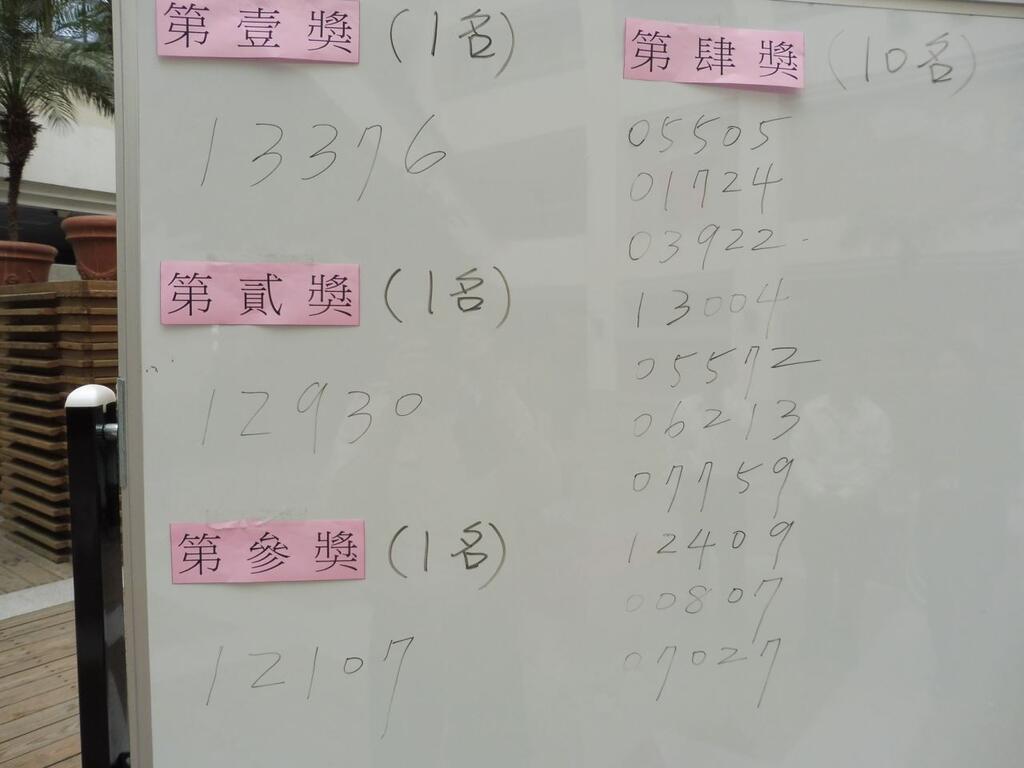 第壹獎 (1名)
13376
第貳獎 (1名)
12930
第參獎 (1名)
12107
第肆獎 (10名)
05505
01724
03922
13004
05572
06213
07759
12409
00807
07027